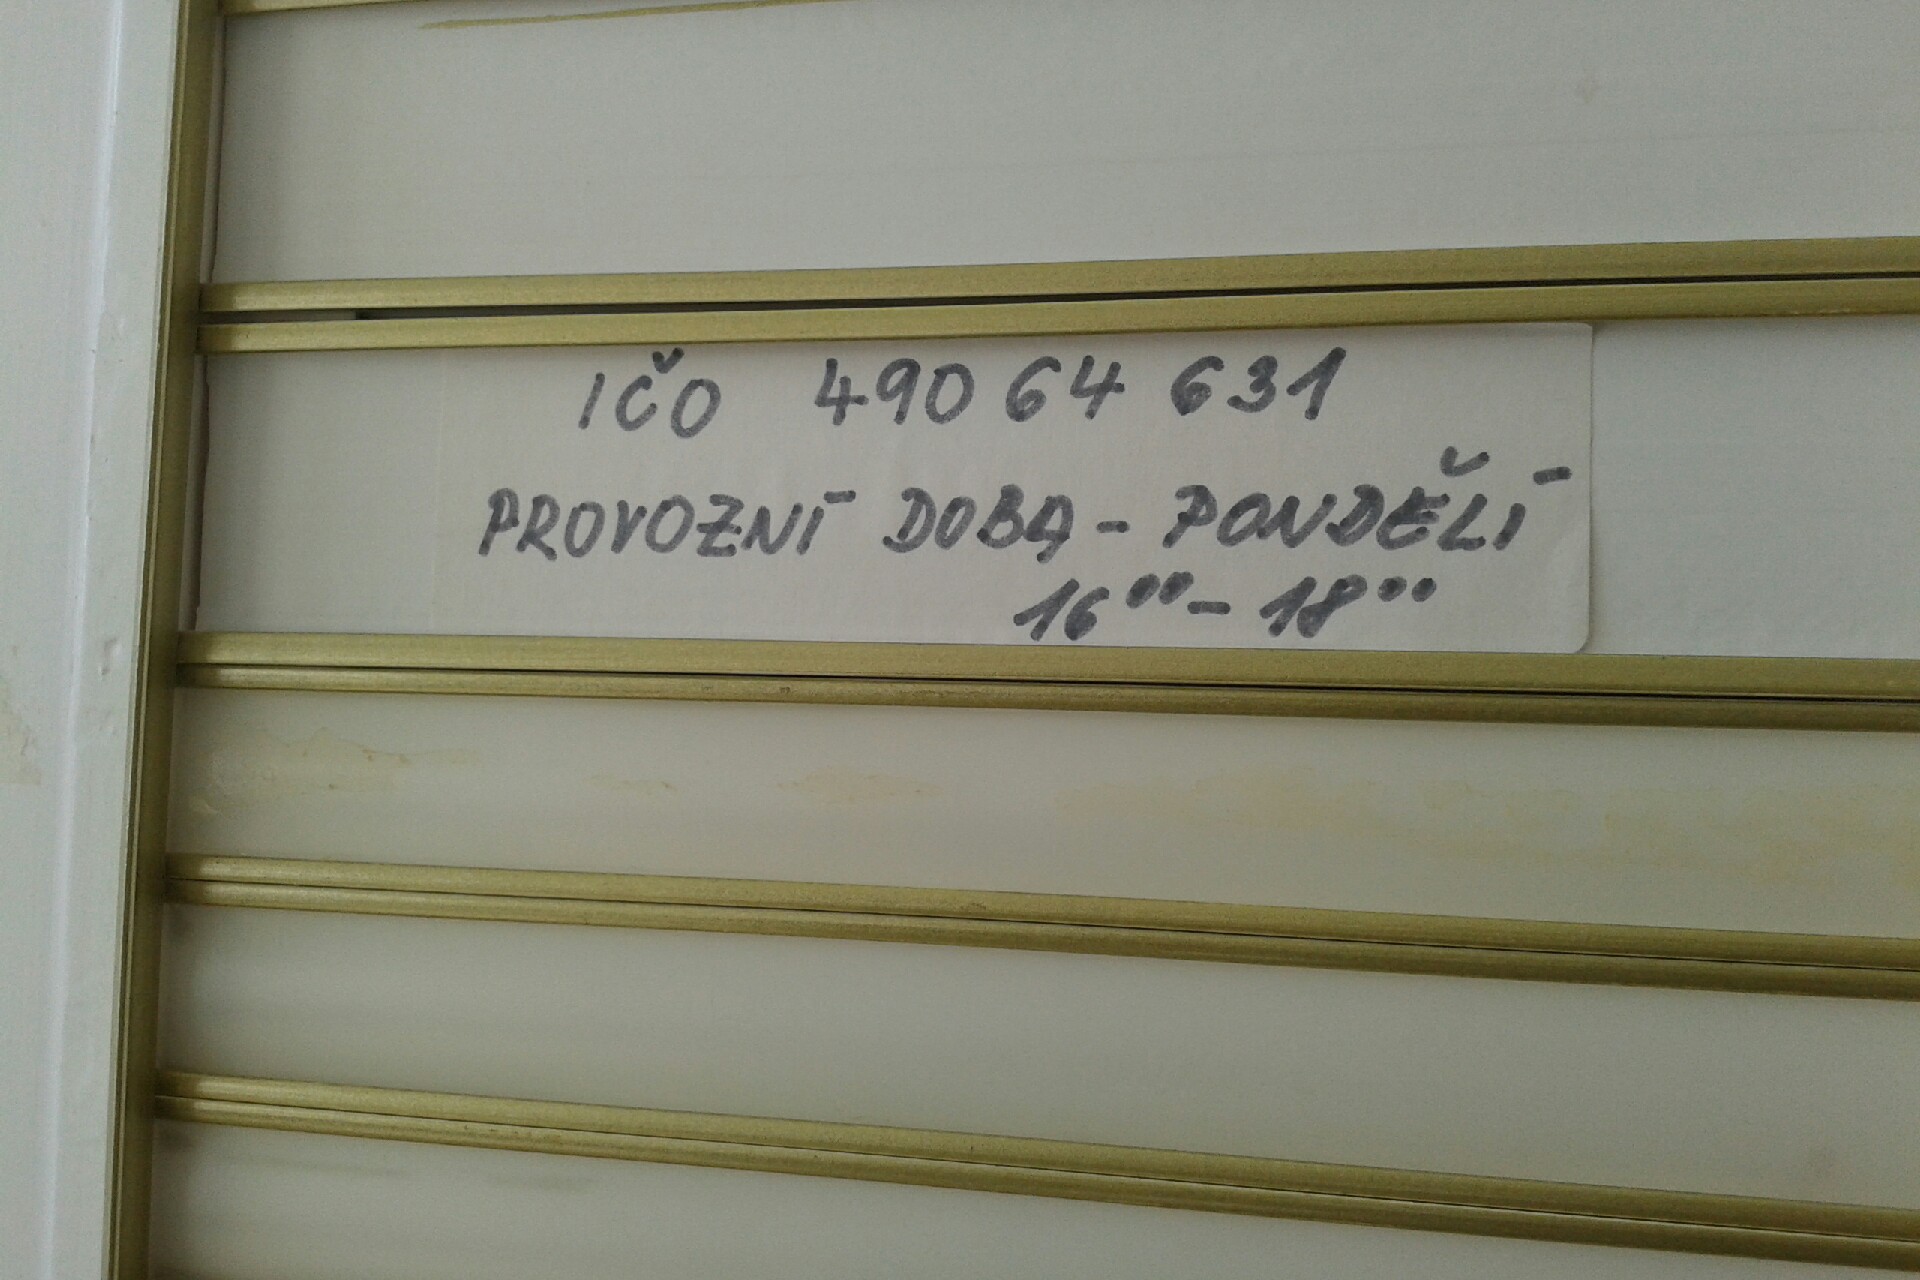 IČO 490 64 631
PROVOZNÍ DOBA - PONDĚLÍ
16°° - 18°°